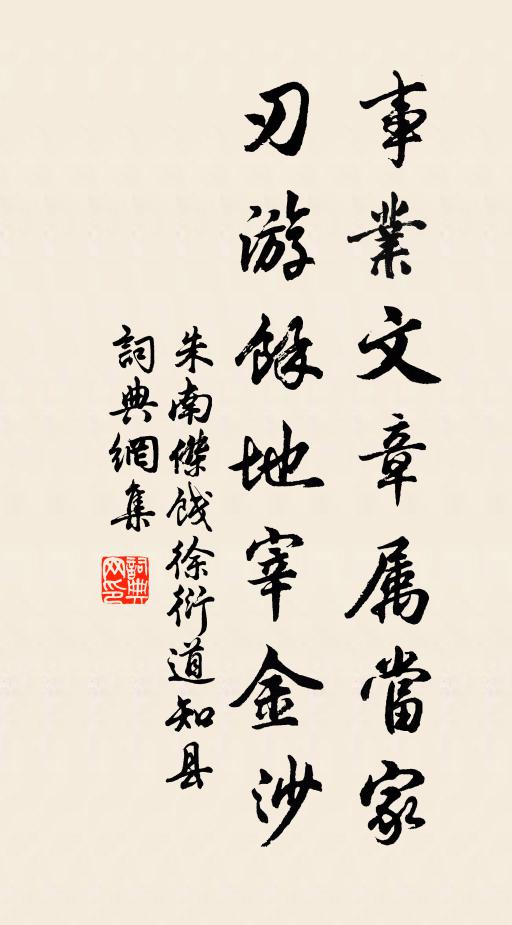 事業文章属當家
刃游餘地宰金沙
朱南傑餞徐衍道知县
詞典網集
詞典网印